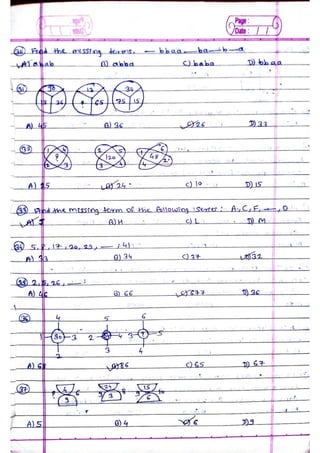 Page :
Date :
30) Find the missing terms. — bbaa — ba — b — a
A) abab B) abba C) baba D) bbaa
31) 38 13 30
36 ? 65 75 15
A) 45 B) 36 C) 26 D) 33
32) ? 120 48
A) 25 B) 24 C) 10 D) 15
33) Find the missing term of the following series : A, C, F, —, O
A) J B) H C) L D) M
34) 5, 8, 17, 20, 29, —, 41
A) 33 B) 34 C) 27 D) 32
35) 2, 5, 26, —
A) 46 B) 66 C) 677 D) 36
36) 4 5 6
1 30 3 2 4 3 ? 5
2 3 4
A) 68 B) 86 C) 65 D) 67
37) ? 4 6 21 8 15 10
9 3 6
A) 5 B) 4 C) 6 D) 9